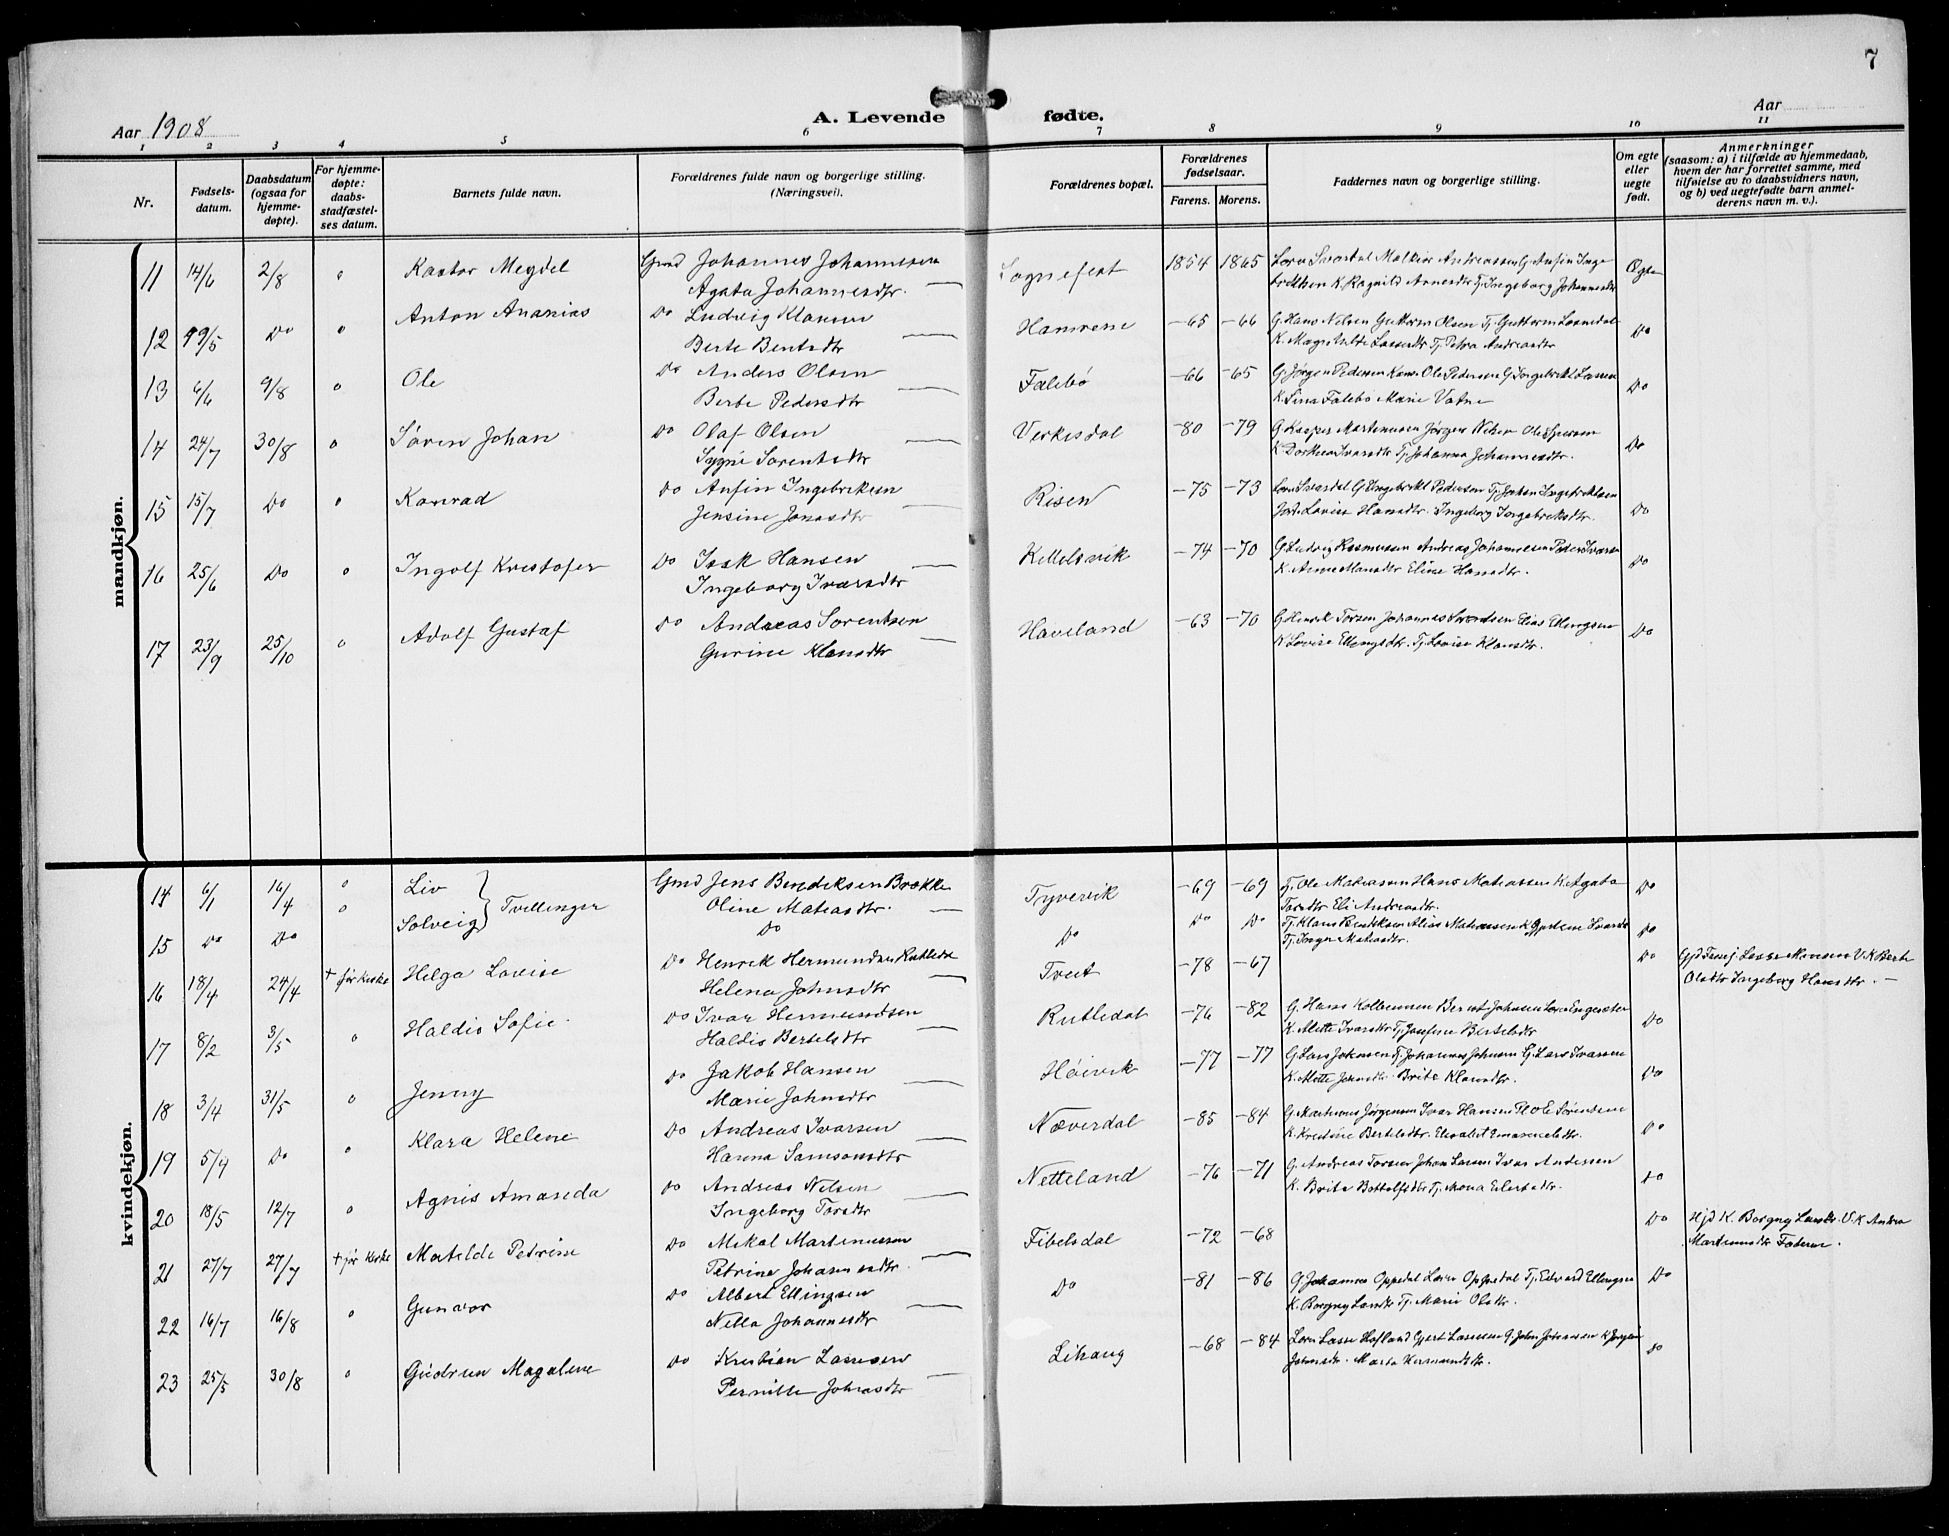 7
Aar 1908
A. Levende fødte.
Aar
1 2 3 4 5 6 7 8 9 10 11
Nr.
Fødsels-
datum.
Daabsdatum
(ogsaa for
hjemme-
døpte).
For hjemme-
døpte:
daabs-
stadfæstel-
ses datum.
Barnets fulde navn.
Forældrenes fulde navn og borgerlige stilling.
(Næringsveil).
Forældrenes bopæl.
Forældrenes
fødselsaar.
Farens. Morens.
Faddernes navn og borgerlige stilling.
Om egte
eller
uegte
født.
Anmerkninger
(saasom: a) i tilfælde av hjemmedaab,
hvem der har forrettet samme, med
tilføielse av to daabsvidners navn,
og b) ved uegtefødte barn anmel-
derens navn m. v.).
mandkjøn.
11 14/6 2/8 " Kastor Megdel Gmd Johannes Johannesen Sognefest 1854 1865 Andreassen G. Anfin Inge
Agata Johannesdtr. brektsen K. Ragnild Arnesdtr Tj. Ingeborg Johannesdtr Egte
12 29/5 Do " Anton Ananias Do Ludvig Klausen Hamrene -65 -66 G. Hans Nilsen Guttorm Olsen Tj. Guttorm
Berte Bentsdtr Lassedtr Tj. Petra Andreasdtr Do
13 6/6 9/8 " Ole Do Anders Olsen Falebø -66 -65 G. Jørgen Pedersen Ole Pedersen G. Ingebrikt Lassen
Berte Pedersdtr K. Sina Falebø Marie Vatne Do
14 24/7 30/8 " Søren Johan Do Olaf Olsen Verkisdal -80 -79 G. Kasper Martinusen Jørgen Nilsen
Sorentsdtr K. Dorthea Ivarsdtr Tj. Johanna Johannesdtr. Do
15 15/7 Do " Konrad Do Anfin Ingebriksen Risen -75 -73 G. Ingebrikt Pedersen Tj. Johan Ingebriktsen
Jensine Jonasdtr Lovise Hansdtr. Ingeborg Ingebriksdtr. Do
16 25/6 Do " Ingolf Kristofer Do Isak Hansen Kittelsvik -74 -70 G. Ludvig Rasmussen Andreas Johannesen Peder Ivarsen
Ingeborg Ivarsdtr K. Anne Mansdtr Eline Hansdtr. Do
17 23/9 25/10 " Adolf Gustaf Do Andreas Sorentsen Haveland -63 -70 G. Henrik Torsen Johannes Elias Ellingsen
Gurine Klausdtr K. Lovise Ellingsdtr. Tj. Lovise Klausdtr. Do
kvindekjøn.
14 6/1 16/4 " Liv Gmd Jens Bendiksen Brække Tyvervik -69 -69 Tj. Ole Matiassen Hans Matiassen K. Agata
Tvillinger Oline Matiasdtr. Torsdtr Eli Andreasdtr Do
15 Do Do " Solveig Do Do Do Do Tj. Klaus Bendiksen Elias Matiassen K.
Tj. Inger Matiasdtr. Do
16 18/4 24/4 † før kirke Helga Lovise Do Henrik Hermundsen Tveit -78 -67 Do Lasse Monsen V. K. Berte
Helena Johnsdtr Olsdtr Ingeborg Hansdtr.
17 8/2 3/5 " Haldis Sofie. Do Ivar Hermundsen Rutledal -76 -82 G. Hans Kolbeinsen Bernt Johnsen
Haldis Bertelsdtr K. Alette Ivarsdtr Tj. Josefine Bertelsdtr Do
18 3/4 31/5 " Jenny Do Jakob Hansen Høivik -77 -77 G. Lars Johnsen Tj. Johannes Johnsen G. Lars Ivarsen
Marie Johnsdtr K. Mette Johnsdtr. Brite Klausdtr. Do
19 5/4 Do " Klara Helene Do Andreas Ivarsen Næverdal -85 -84 G. Jørgensen Ivar Hansen Sørensen
Hanna Samsonsdtr K. Kristine Bertelsdtr. Elisabet Emanuelsdtr. Do
20 18/5 12/7 " Agnis Amanda Do Andreas Nilsen Netteland -76 -71 G. Andreas Torsen Johan Larsen Ivar Andersen
Ingeborg Torsdtr K. Brita Bottolfsdtr Tj. Mona Eilertsdtr. Do
21 27/7 27/7 † før kirke Matilde Petrine Do Mikal Martinussen Fibelsdal -72 -68 Do Hjd K. Borgny Larsdtr. V. K. Andrea
Petrine Johannesdtr. Martinusdtr Faderen.
22 16/7 16/8 " Gunvor Do Albert Ellingsen Do -81 -86 G. Johannes Oppedal Oppedal Tj. Edvard Ellingsen
Nella Johannesdtr K. Borgny Larsdtr Tj. Marie Olsdtr. Do
23 25/5 30/8 " Gudrun Magalene Do Kristian Lassesen Lihaug -68 -84 Lasse Hofland Gjert Lassesen G. John Johannesen K.
Pernille Johnsdtr Johnsdtr. Marta Hermundsdtr. Do